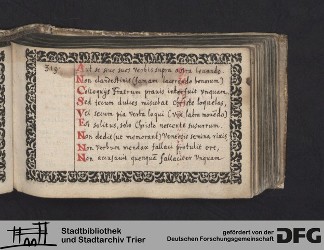 Aut si sue sues Verbis supra astra leuando.
Non clandestinis (famam lacerando bonorum)
Colloquijs Fratrum prauis interfuit unquam.
Sed secum dulces miscebat Christo loquelas,
Vel secum pia verba loqui (Vix labra mouendo)
Est solitus, solo Christo noscente susurrum.
Non dedit (ut memorant) Veneris semina
Non Verbum mendax fallaci protulit ore,
Non accusauit quenquã fallaciter Unquam
Stadtbibliothek
und Stadtarchiv Trier
gefördert von der
Deutschen Forschungsgemeinschaft
DFG